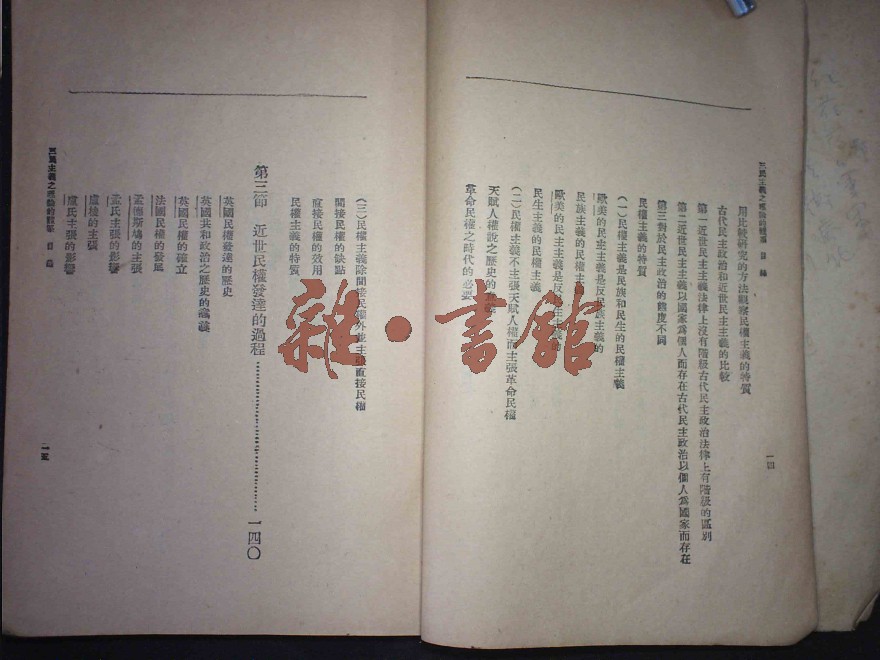 三民主義之理論的體系 目錄
一四
用比較研究的方法觀察民權主義的特質
古代民主政治和近世民主主義的比較
第一近世民主主義法律上沒有階級古代民主政治法律上有階級的區別
第二近世民主主義以國家為個人而存在古代民主政治以個人為國家而存在
第三對於民主政治的態度不同
民權主義的特質
(一)民權主義是民族和民生的民權主義
歐美的民主主義是反民族主義的
民族主義的民權主義
歐美的民主主義是反民生主義
民生主義的民權主義
(二)民權主義不主張天賦人權而主張革命民權
天賦人權說之歷史的
革命民權之時代的必要
(三)民權主義除間接民權外並主張直接民權
間接民權的缺點
直接民權的效用
民權主義的特質
第三節 近世民權發達的過程…………一四〇
英國民權發達的歷史
英國共和政治之歷史的意義
英國民權的確立
法國民權的發展
孟德斯鳩的主張
孟氏主張的影響
盧梭的主張
盧氏主張的影響
三民主義之理論的體系 目錄
一五
雜·書館